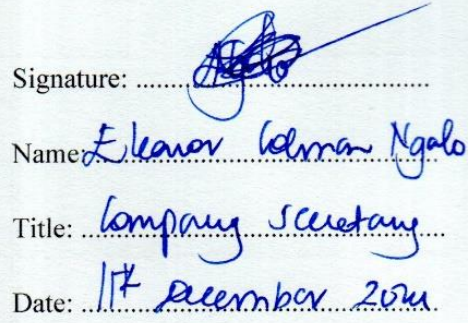 Signature:
Name: Eleanor Colman Ngalo
Title: Company Secretary
Date: 11th December